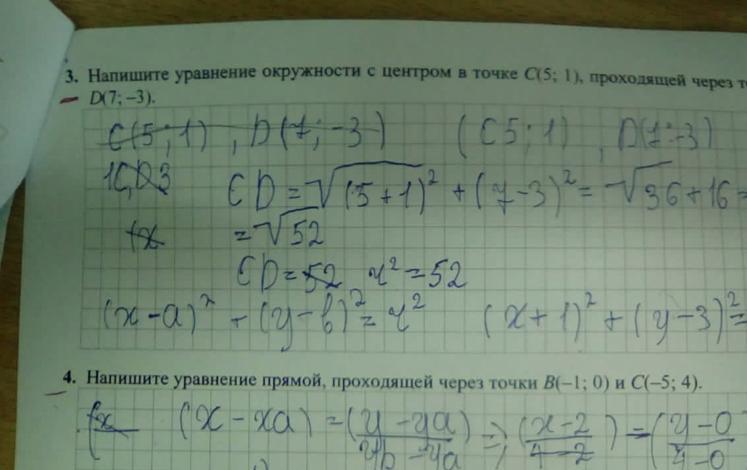 3. Напишите уравнение окружности с центром в точке C(5; 1), проходящей через
D(7; –3).
C(5;1), D(7;-3) (C5;1), D(7;-3)
CD = √(5+1)² + (7-3)² = √36+16 =
= √52
CD = 52 r² = 52
(x-a)² + (y-b)² = r² (x+1)² + (y-3)² =
4. Напишите уравнение прямой, проходящей через точки B(–1; 0) и C(–5; 4).
(x-xa) = (y-ya)/(yb-ya) =; (x-2)/(4-2) = (y-0)/(4-0)